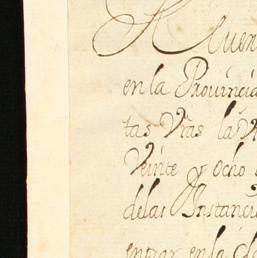 en la Prouincia
tas Vras la V
Veinte y ocho
delas Instanci
entrar en la cle